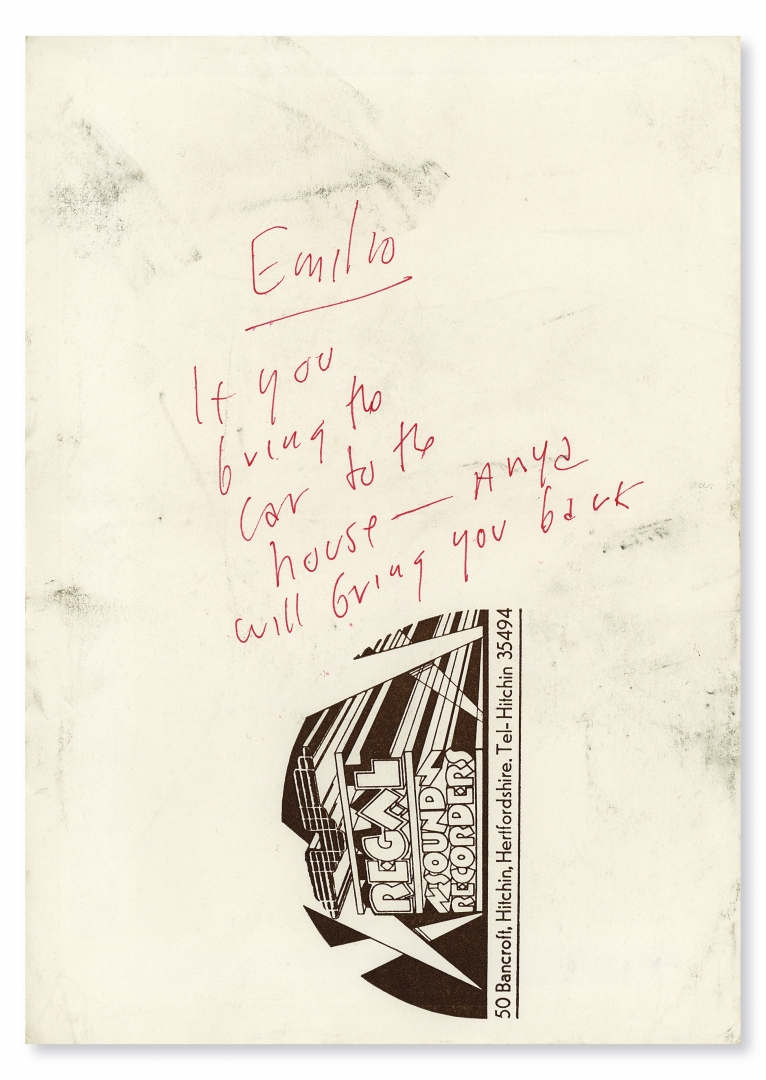 Emilio
If you
bring the
car to the
house — Anya
will bring you back
REGAL
SOUND
RECORDERS
50 Bancroft, Hitchin, Hertfordshire. Tel- Hitchin 35494